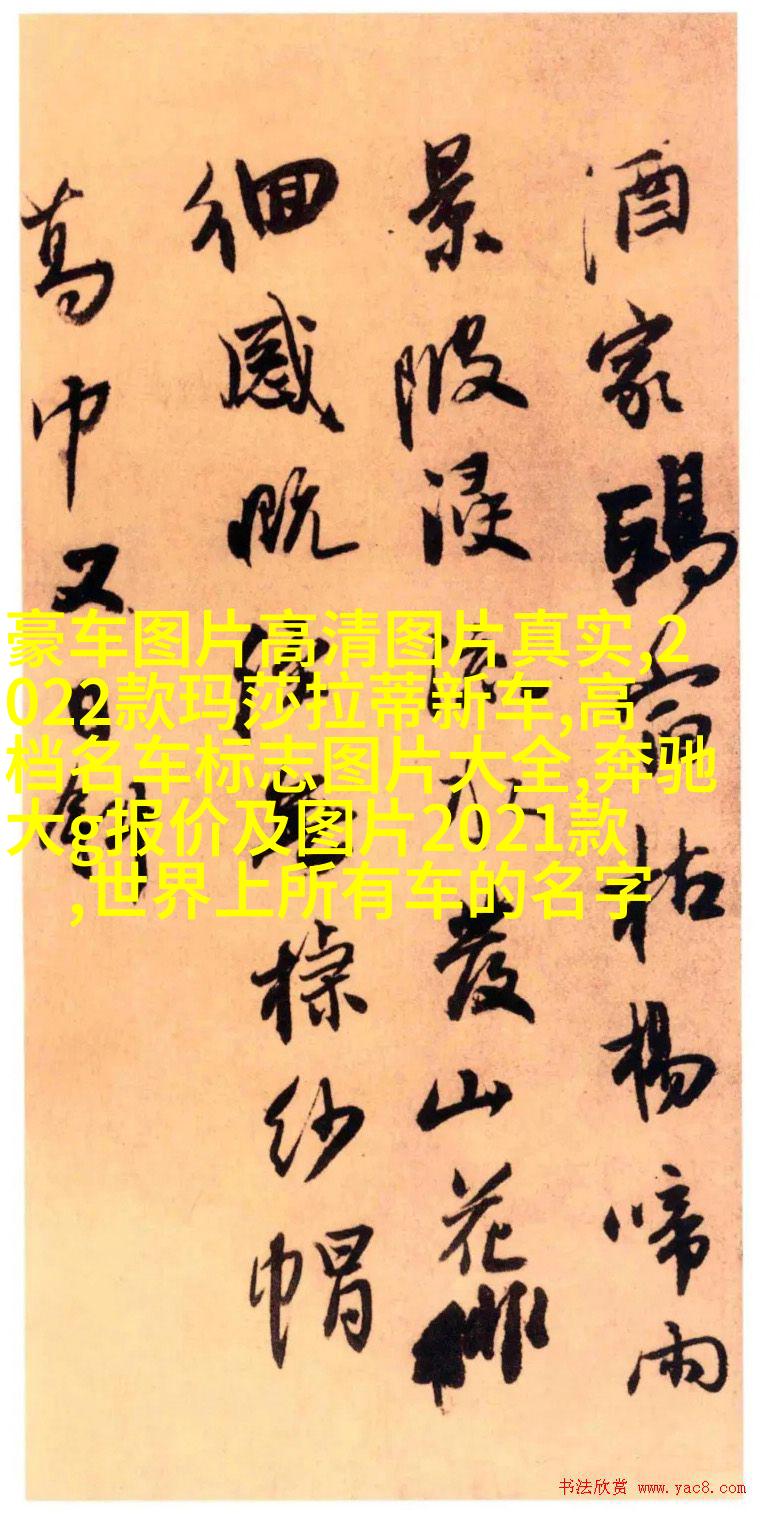 酒家宿枯楊啼雨
景陂浸水發山花徘
徊感既紗帽
葛巾又日
豪车图片高清图片真实,2
022款玛莎拉蒂新车,高
档名车标志图片大全,奔驰
大g报价及图片2021款
,世界上所有车的名字
书法欣赏 www.yac8.com